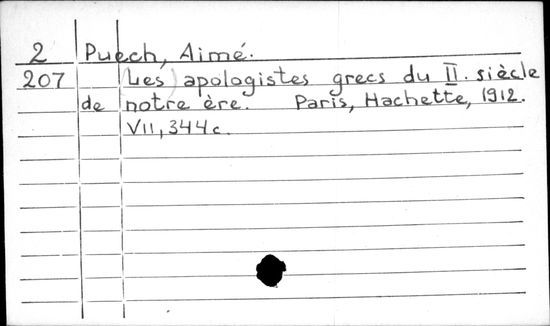 2 Puech, Aimé.
207 (Les) apologistes grecs du II. siècle
de notre ère. Paris, Hachette, 1912.
VII, 344 c.